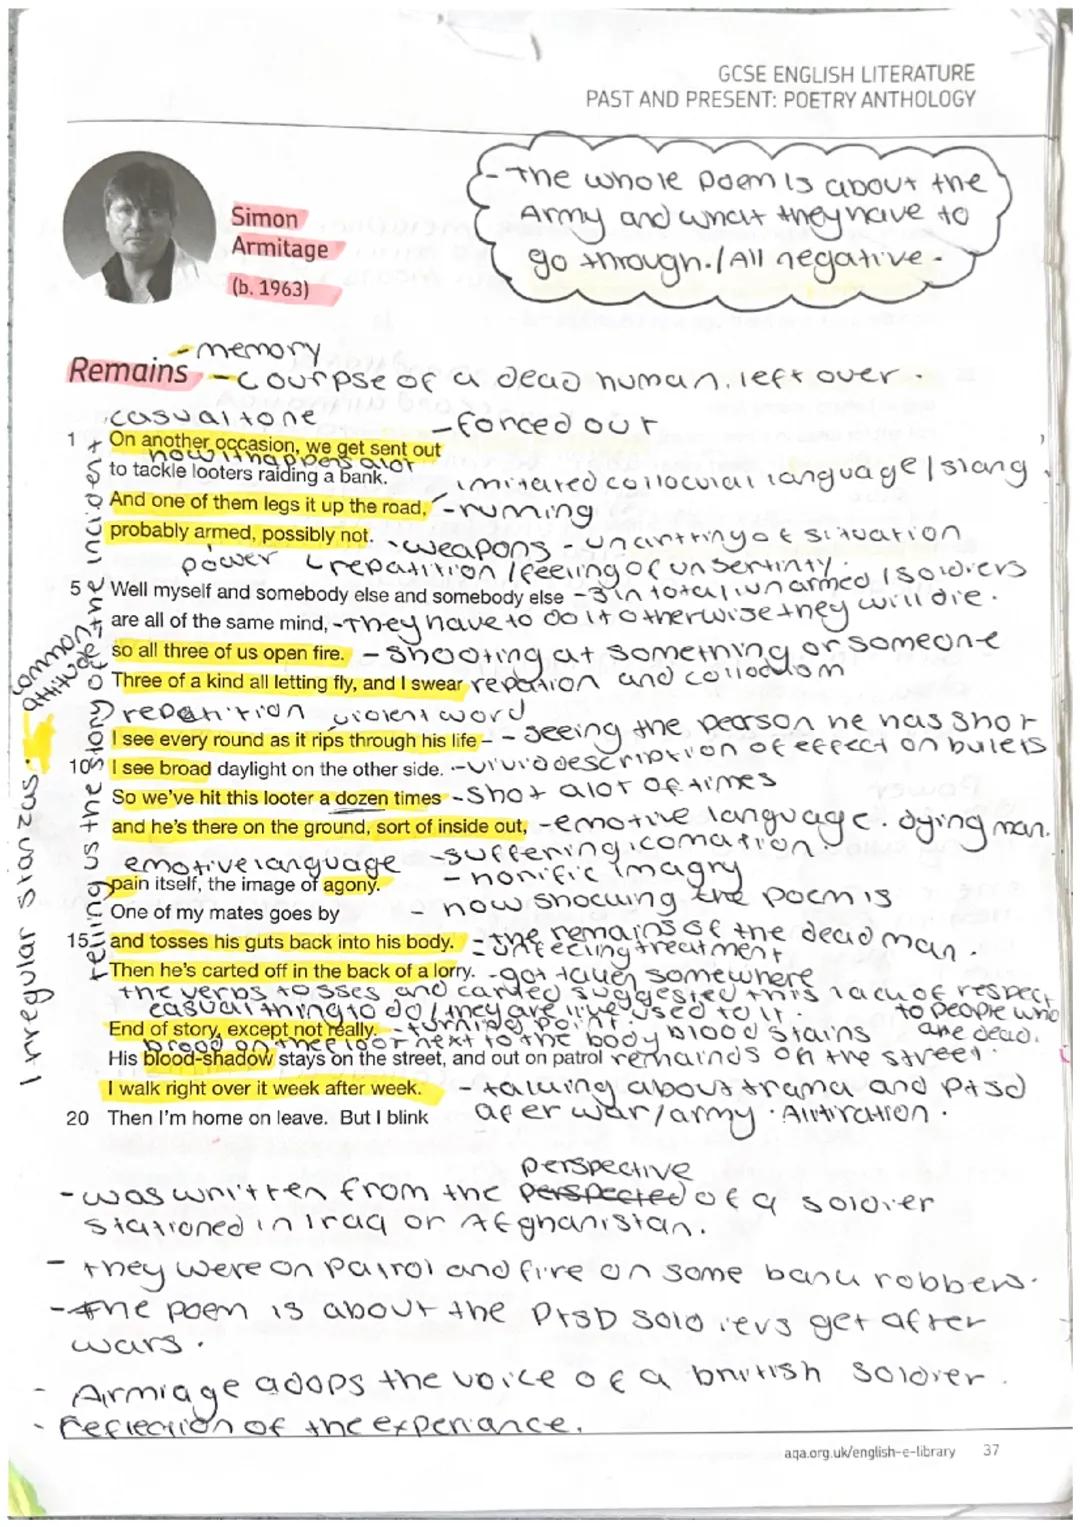 GCSE ENGLISH LITERATURE
PAST AND PRESENT: POETRY ANTHOLOGY
- The whole poem is about the
Army and what they have to
go through. / All negative.
Simon
Armitage
(b. 1963)
- memory
Remains - courpse of a dead human. left over.
casual tone - forced out
1 On another occasion, we get sent out
how it happens alot
to tackle looters raiding a bank.
imitated collocuial language / slang
And one of them legs it up the road, - running
probably armed, possibly not. - weapons - of situation
power repatition / feeling of unsertinty.
5 Well myself and somebody else and somebody else - 3 in total / unarmed / soldiers
are all of the same mind, - They have to do it otherwise they will die.
so all three of us open fire. - shooting at something or someone
Three of a kind all letting fly, and I swear repation and
repatition violent word
I see every round as it rips through his life – - seeing the pearson he has shot
10 I see broad daylight on the other side. - vivid description of effect on bulets
So we've hit this looter a dozen times - shot alot of times
and he's there on the ground, sort of inside out, - emotive language. dying man.
emotive language - suffering, comation
- horrific imagry
pain itself, the image of agony.
One of my mates goes by - how shocking the poem is
15 and tosses his guts back into his body. - the remains of the dead man.
- unfeeling treatment
Then he's carted off in the back of a lorry. - got taken somewhere
the verbs tosses and carted suggested this lack of respect
casual thing to do / they are like used to it. to people who
End of story, except not really. - turning point. blood stains are dead.
blood on the floor next to the body
His blood-shadow stays on the street, and out on patrol remainds on the street.
I walk right over it week after week. - talking about trama and Ptsd
20 Then I'm home on leave. But I blink afer war/army.
Irregular stanzas. common attitude
telling us the story of the incident
perspective
- was written from the perspected of a soldier
stationed in Iraq or Afghanistan.
- they were on patrol and fire on some bank robbers.
- the poem is about the PTSD soldiers get after
wars.
- Armiage adops the voice of a british soldier.
- reflection of the experiance.
aqa.org.uk/english-e-library 37